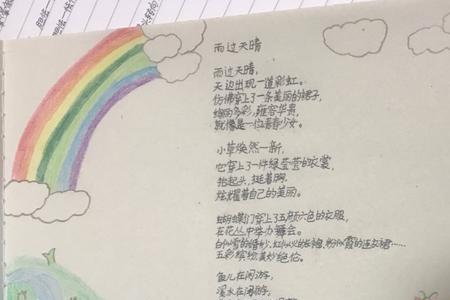 雨过天晴
雨过天晴，
天边出现一道彩虹。
仿佛穿上了一条美丽的裙子，
绚丽多彩，雍容华贵，
就像是一位青春少女。
小草焕然一新，
它穿上了一件绿莹莹的衣裳，
抬起头，挺着胸，
炫耀着自己的美丽。
蝴蝶们穿上了五颜六色的衣服，
在花丛中举办舞会。
白似雪的婚纱，红似火的长裙，粉似霞的连衣裙……
五彩缤纷美妙绝伦。
鱼儿在闲游，
溪水在闲游，